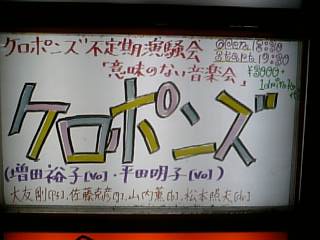 ケロポンズ不定期演騒会
「意味のない音楽会」
open 18:30
start 19:30
¥3000+
1drink
ケロポンズ
(増田裕子[Vo]・平田明子[Vo])
大友剛[Pf], 佐藤克彦[g], 山内薫[b], 松本照夫[dr]